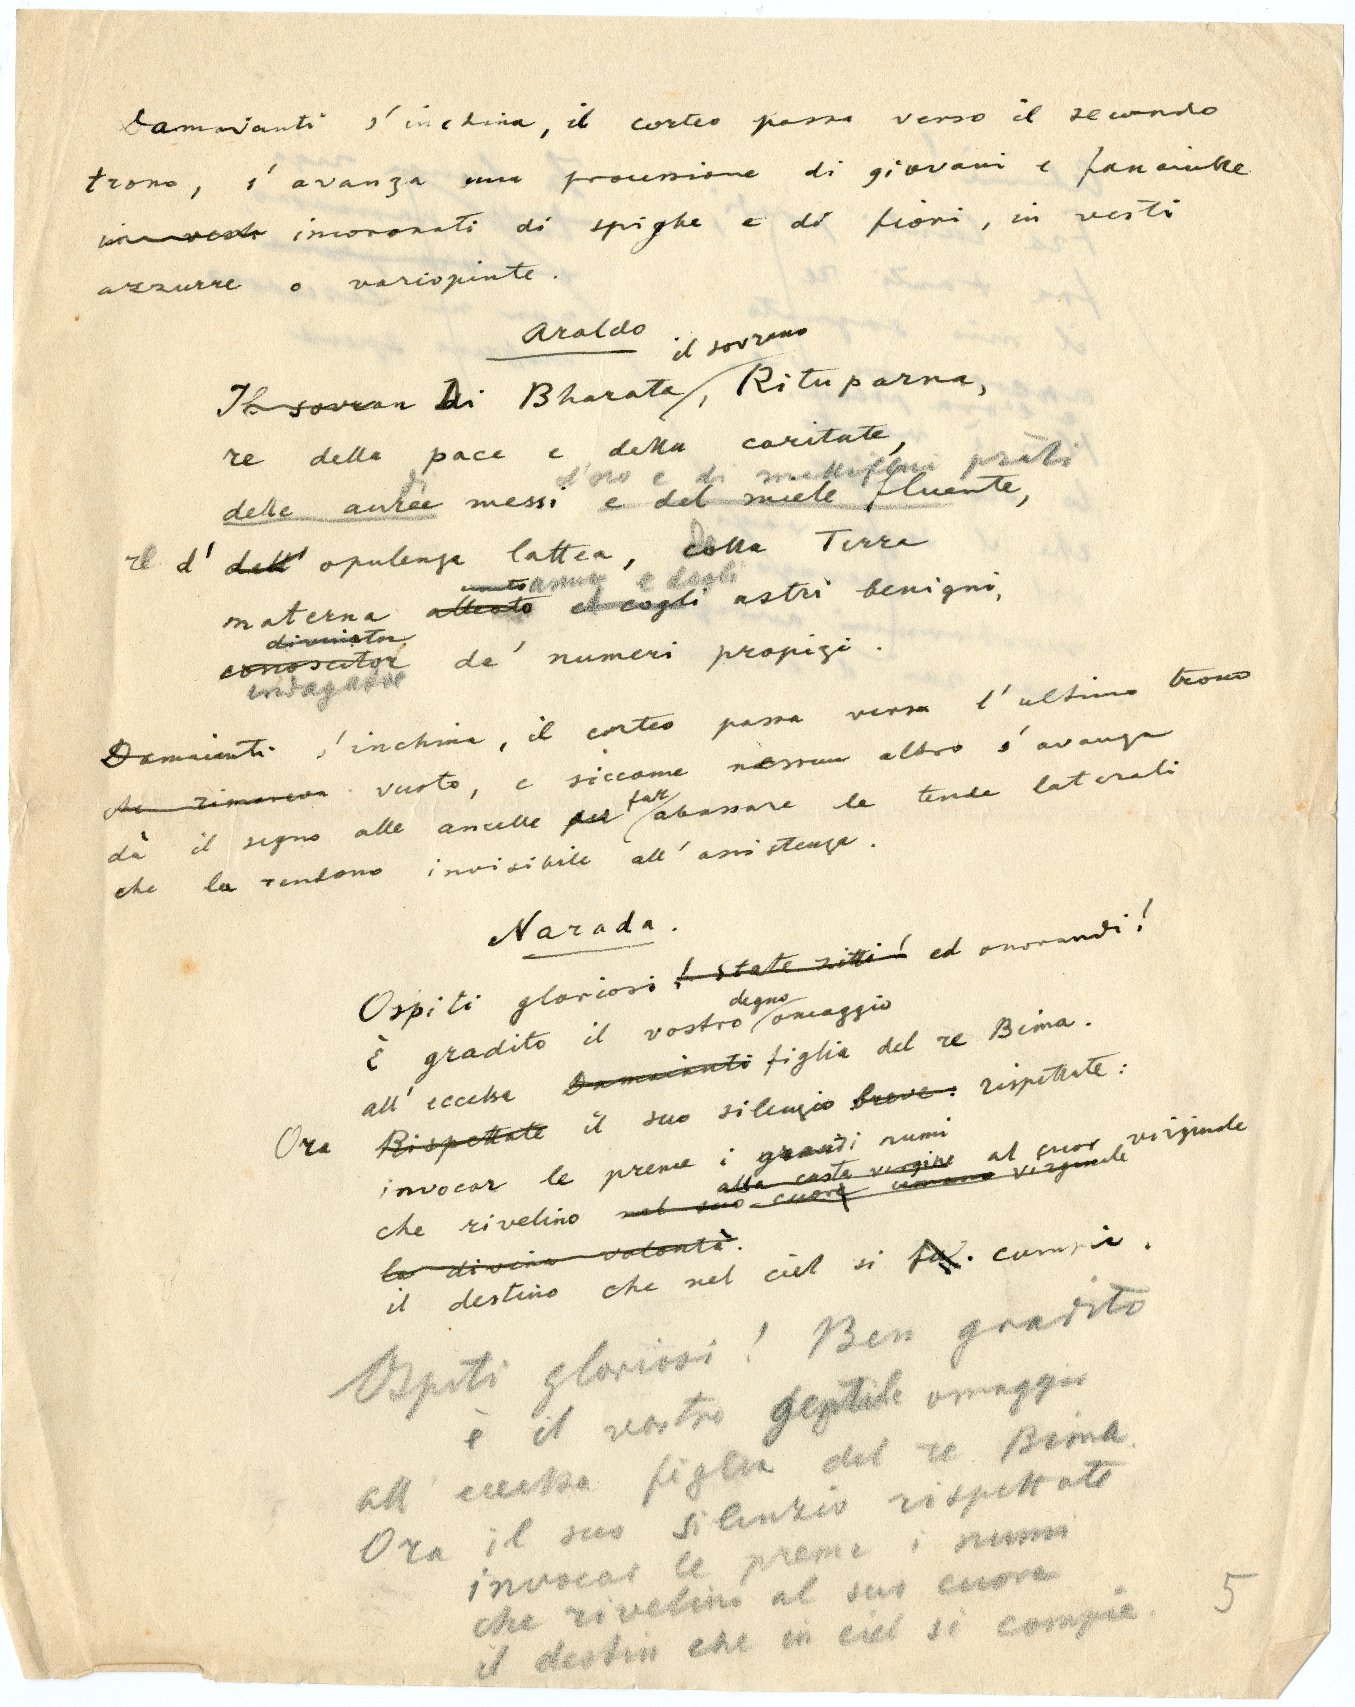 Damaianti s'inchina, il corteo passa verso il secondo
trono, s'avanza una processione di giovani e fanciulle
in vesti incoronati di spighe e di fiori, in vesti
azzurre o variopinte.
Araldo
il sovrano
Il sovran Di Bharata, Rituparna,
re della pace e della caritate,
d'oro e di mellifflui prati
delle auree messi e del miele fluente,
re d' dell' opulenza lattea, della Terra
unito amico e degli
materna alleato e cogli astri benigni,
divinator
conoscitor de' numeri propizi.
indagatore
Damaianti s'inchina, il corteo passa verso l'ultimo trono
che rimaneva vuoto, e siccome nessun altro s'avanza
dà il segno alle ancelle per far abassare le tende laterali
che la rendono invisibile all'assistenza.
Narada.
Ospiti gloriosi! State zitti! ed onorandi!
degno
È gradito il vostro omaggio
all'eccelsa Damaianti figlia del re Bima.
Ora Rispettate il suo silenzio breve: rispettate:
invocar le preme i grandi numi
alla casta vergine al cuor virginale
che rivelino nel suo cuore umano virginale
la divina volontà.
il destino che nel ciel si compie.
Ospiti gloriosi! Ben gradito
è il vostro gentile omaggio
all'eccelsa figlia del re Bima.
Ora il suo silenzio rispettate
invocar le preme i numi
che rivelino al suo cuore
il destin che in ciel si compie.
5